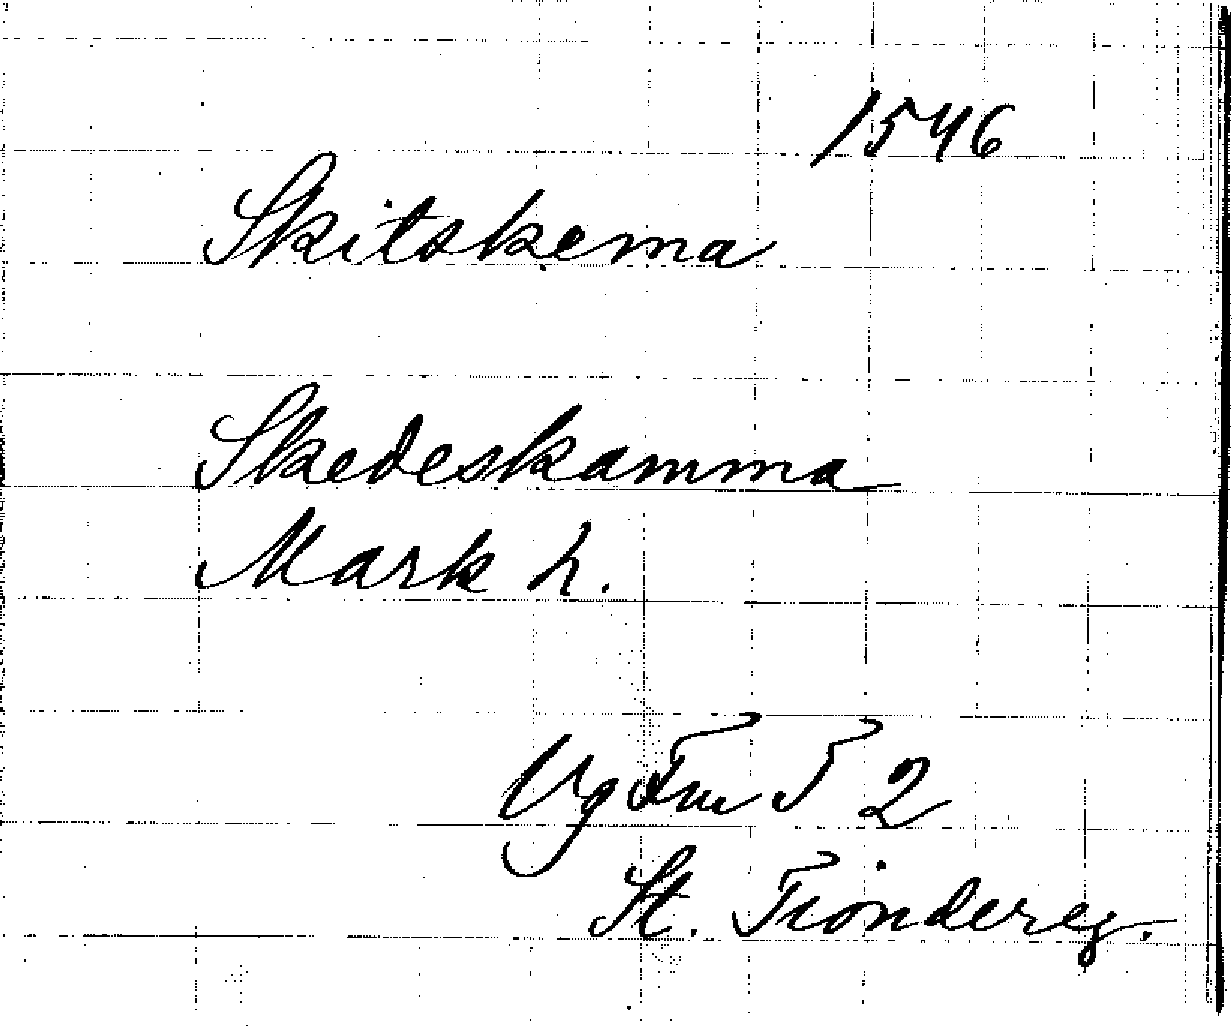 1546
Skitskema
Skedeskamma
Mark h.
Vg Tun T 2
St. Tiondereg.